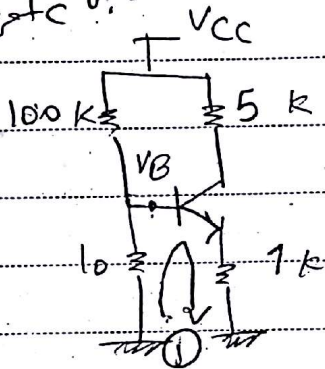 VCC
100 k 5 k
VB
10 1 k
1